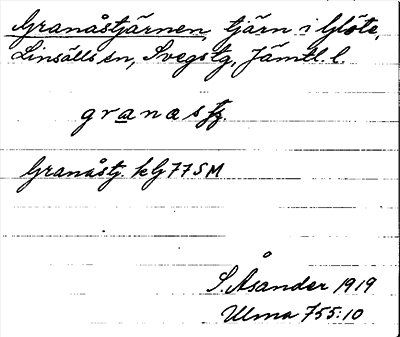 Granåstjärnen, tjärn i Glöte,
Linsälls sn, Svegs tg, Jämtl. l.
granastj.
Granåstj. kG 77 SM
Å
S. Åsander 1919
Ulma 755:10